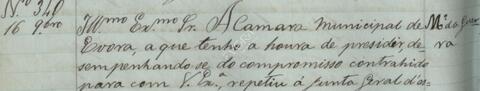 Nº 340
16 9.bro Ill.mo Ex.mo Sr. A Camara Municipal de M.º da Guer
Evora, a que tenho a honra de presidir, de- ra
sempenhando se do compromisso contrahido
para com V. Ex.ª, repetiu á Junta Geral d'es-